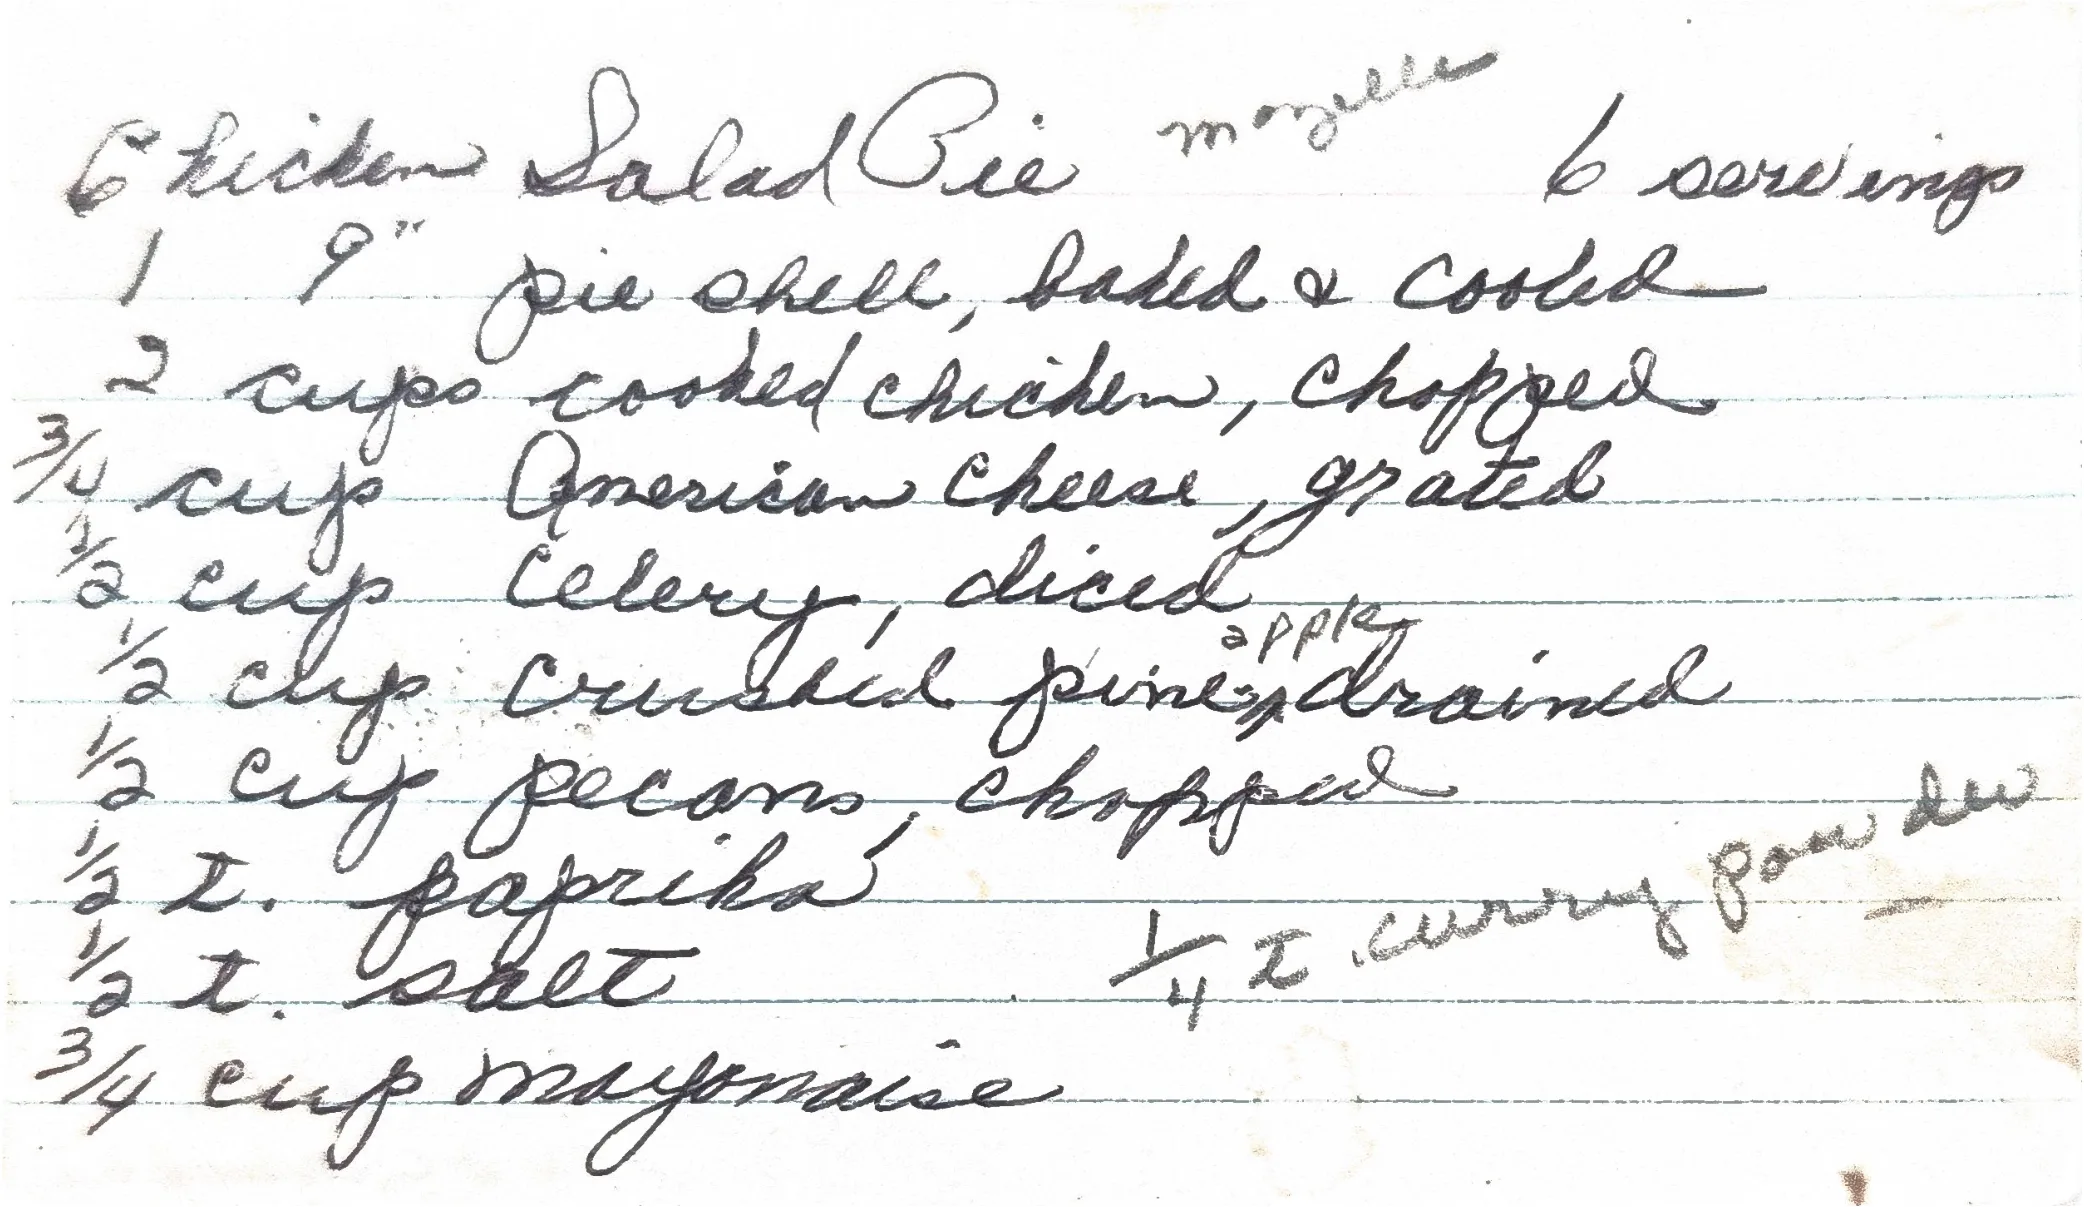 Chicken Salad Pie mozelle 6 servings
1 9" pie shell, baked & cooled
2 cups cooked chicken, chopped
3/4 cup American cheese, grated
1/2 cup celery, diced
1/2 cup crushed pineapple, drained
1/2 cup pecans, chopped
1/2 t. paprika
1/2 t. salt 1/4 t. curry powder
3/4 cup mayonaise